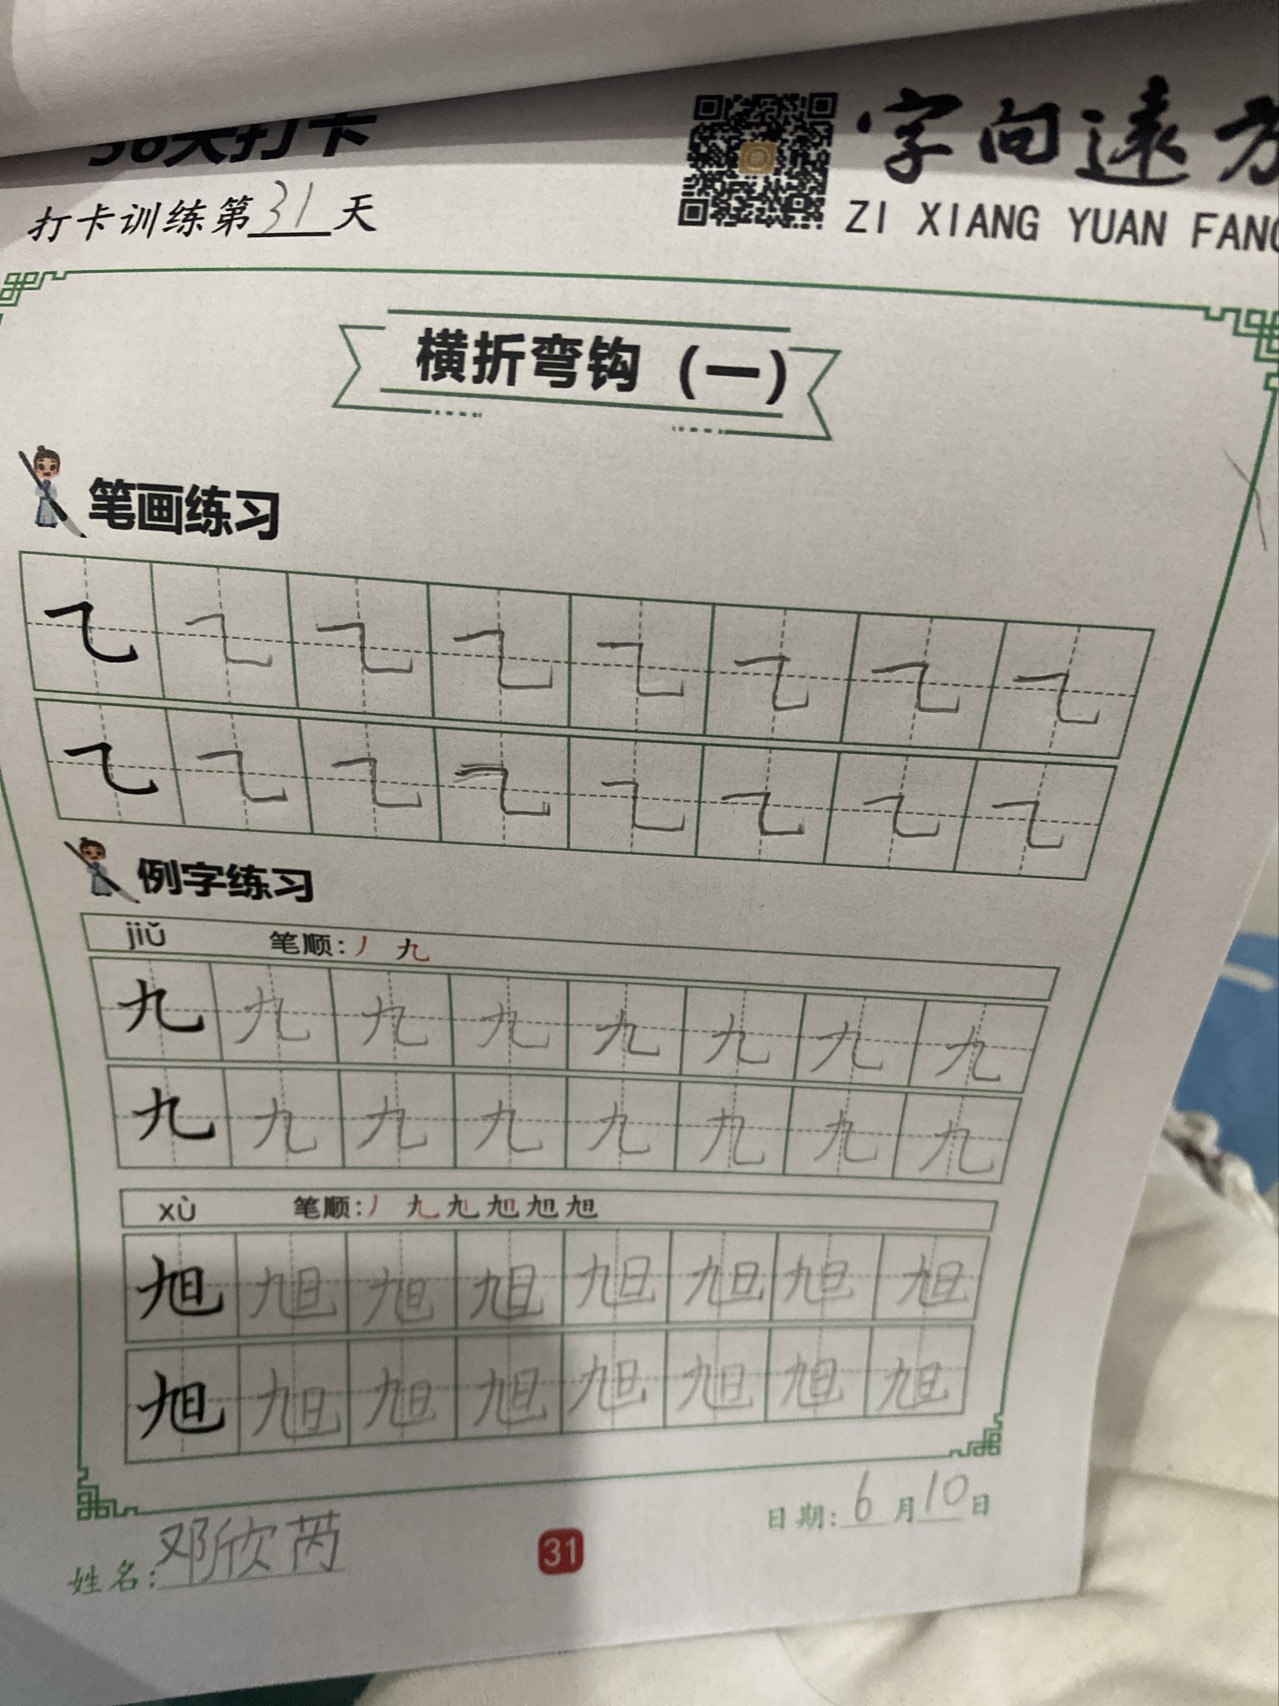 天打卡
字向遠方
打卡训练第31天
ZI XIANG YUAN FANG
横折弯钩（一）
笔画练习
㇈ ㇈ ㇈ ㇈ ㇈ ㇈ ㇈ ㇈
㇈ ㇈ ㇈ ㇈ ㇈ ㇈ ㇈ ㇈
例字练习
jiǔ 笔顺：丿 九
九 九 九 九 九 九 九 九
九 九 九 九 九 九 九 九
xù 笔顺：丿 九 旭 旭 旭 旭
旭 旭 旭 旭 旭 旭 旭 旭
旭 旭 旭 旭 旭 旭 旭 旭
姓名：邓欣芮
31
日期：6月10日